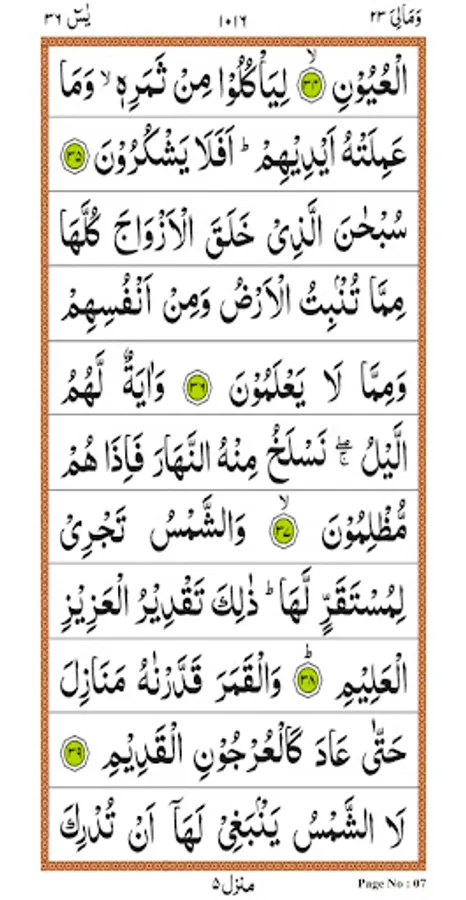 وَمَالِیَ ۲۳ ۱۰۱۶ یٰسٓ ۳۶
الْعُیُوْنِ ۙ﴿۳۴﴾ لِیَاْكُلُوْا مِنْ ثَمَرِهٖ ۙ وَمَا
عَمِلَتْهُ اَیْدِیْهِمْ ؕ اَفَلَا یَشْكُرُوْنَ ﴿۳۵﴾
سُبْحٰنَ الَّذِیْ خَلَقَ الْاَزْوَاجَ كُلَّهَا
مِمَّا تُنْۢبِتُ الْاَرْضُ وَمِنْ اَنْفُسِهِمْ
وَمِمَّا لَا یَعْلَمُوْنَ ﴿۳۶﴾ وَاٰیَةٌ لَّهُمُ
الَّیْلُ ۖۚ نَسْلَخُ مِنْهُ النَّهَارَ فَاِذَا هُمْ
مُّظْلِمُوْنَ ۙ﴿۳۷﴾ وَالشَّمْسُ تَجْرِیْ
لِمُسْتَقَرٍّ لَّهَا ؕ ذٰلِكَ تَقْدِیْرُ الْعَزِیْزِ
الْعَلِیْمِ ؕ﴿۳۸﴾ وَالْقَمَرَ قَدَّرْنٰهُ مَنَازِلَ
حَتّٰی عَادَ كَالْعُرْجُوْنِ الْقَدِیْمِ ﴿۳۹﴾
لَا الشَّمْسُ یَنْۢبَغِیْ لَهَاۤ اَنْ تُدْرِكَ
منزل ۵ Page No : 07